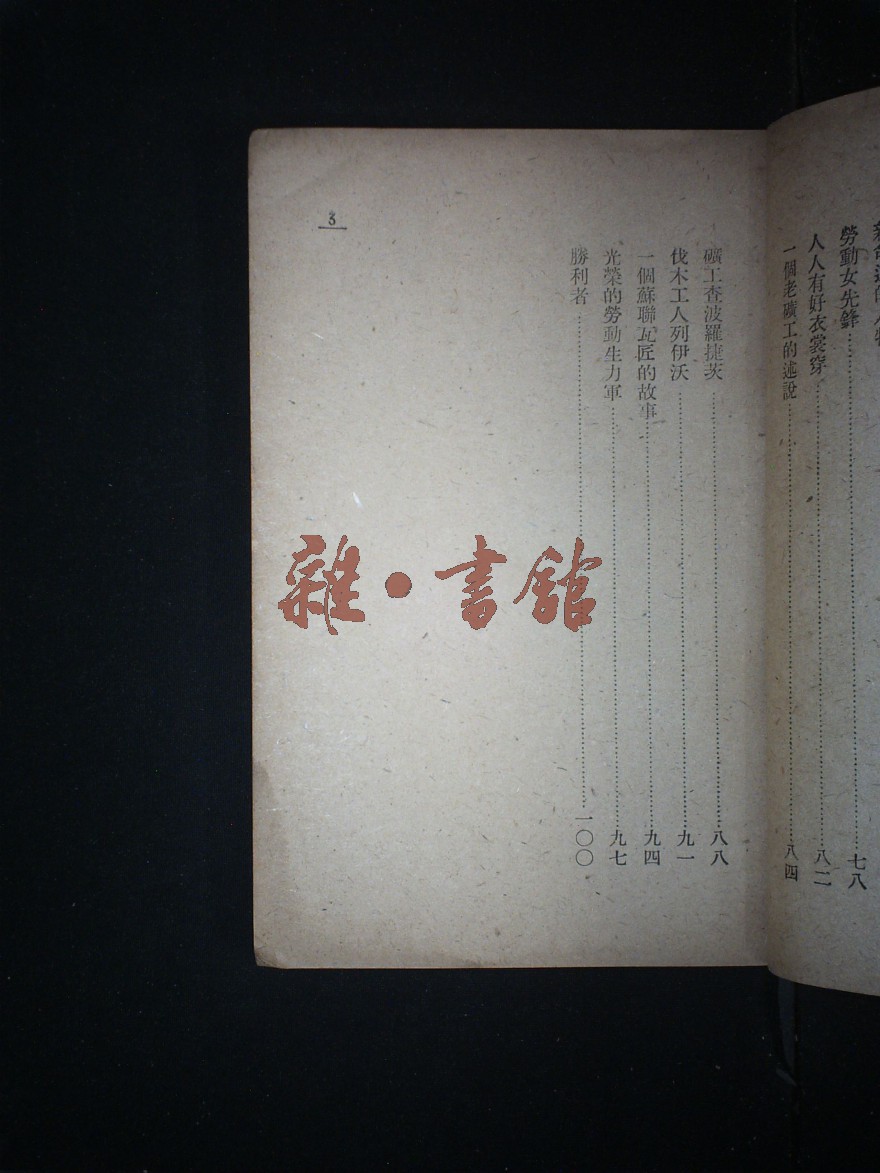 勞動女先鋒……七八
人人有好衣裳穿……八二
一個老礦工的述說……八四
礦工查波羅捷茨……八八
伐木工人列伊沃……九一
一個蘇聯瓦匠的故事……九四
光榮的勞動生力軍……九七
勝利者……一〇〇
3
雜·書館